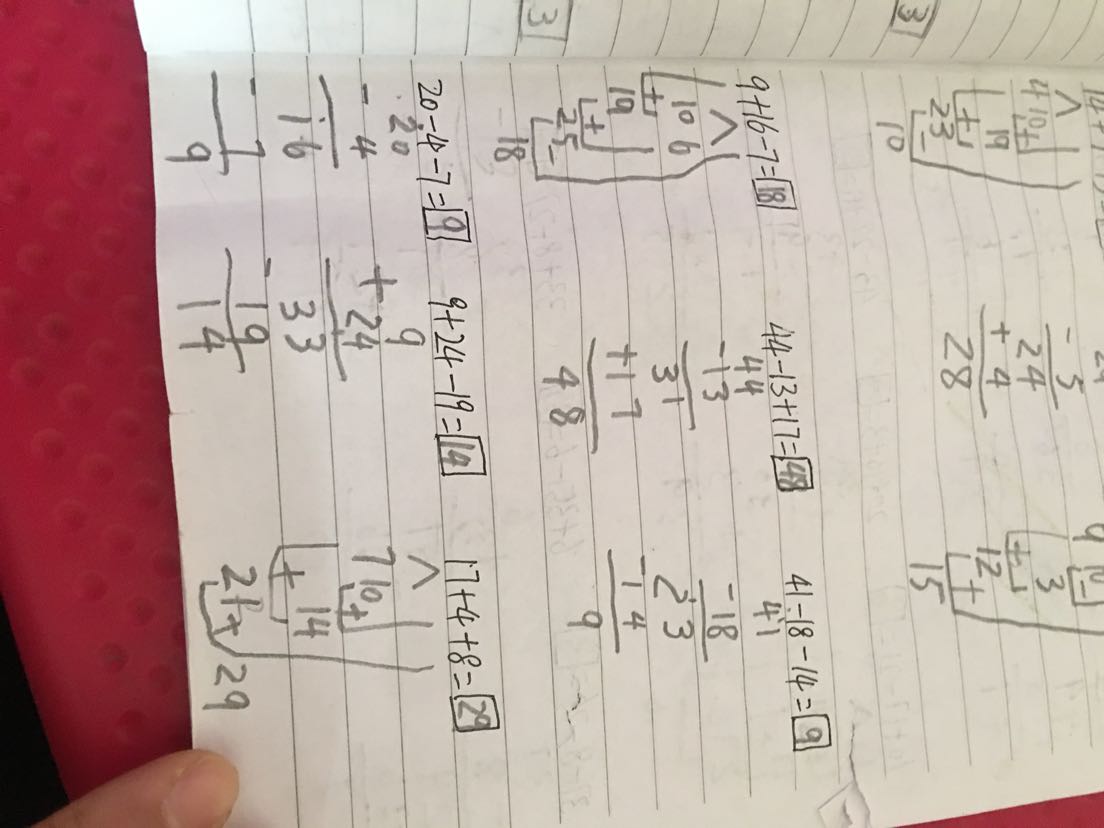 4 10+ - 5 9 10-
19 24 3
+ + 4 +
23- 28 12
3 10 + 15
9+16-7=18 44-13+17=48 41-18-14=9
10 6 44 41
+ -13 -18
19 31 23
+ +17 -14
25- 48 9
3 -18
20-4-7=9 9+24-19=14 17+4+8=29
20 9
- 4 + 24 7 10+
16 33 + 14
- 7 - 19 21+
9 14 29